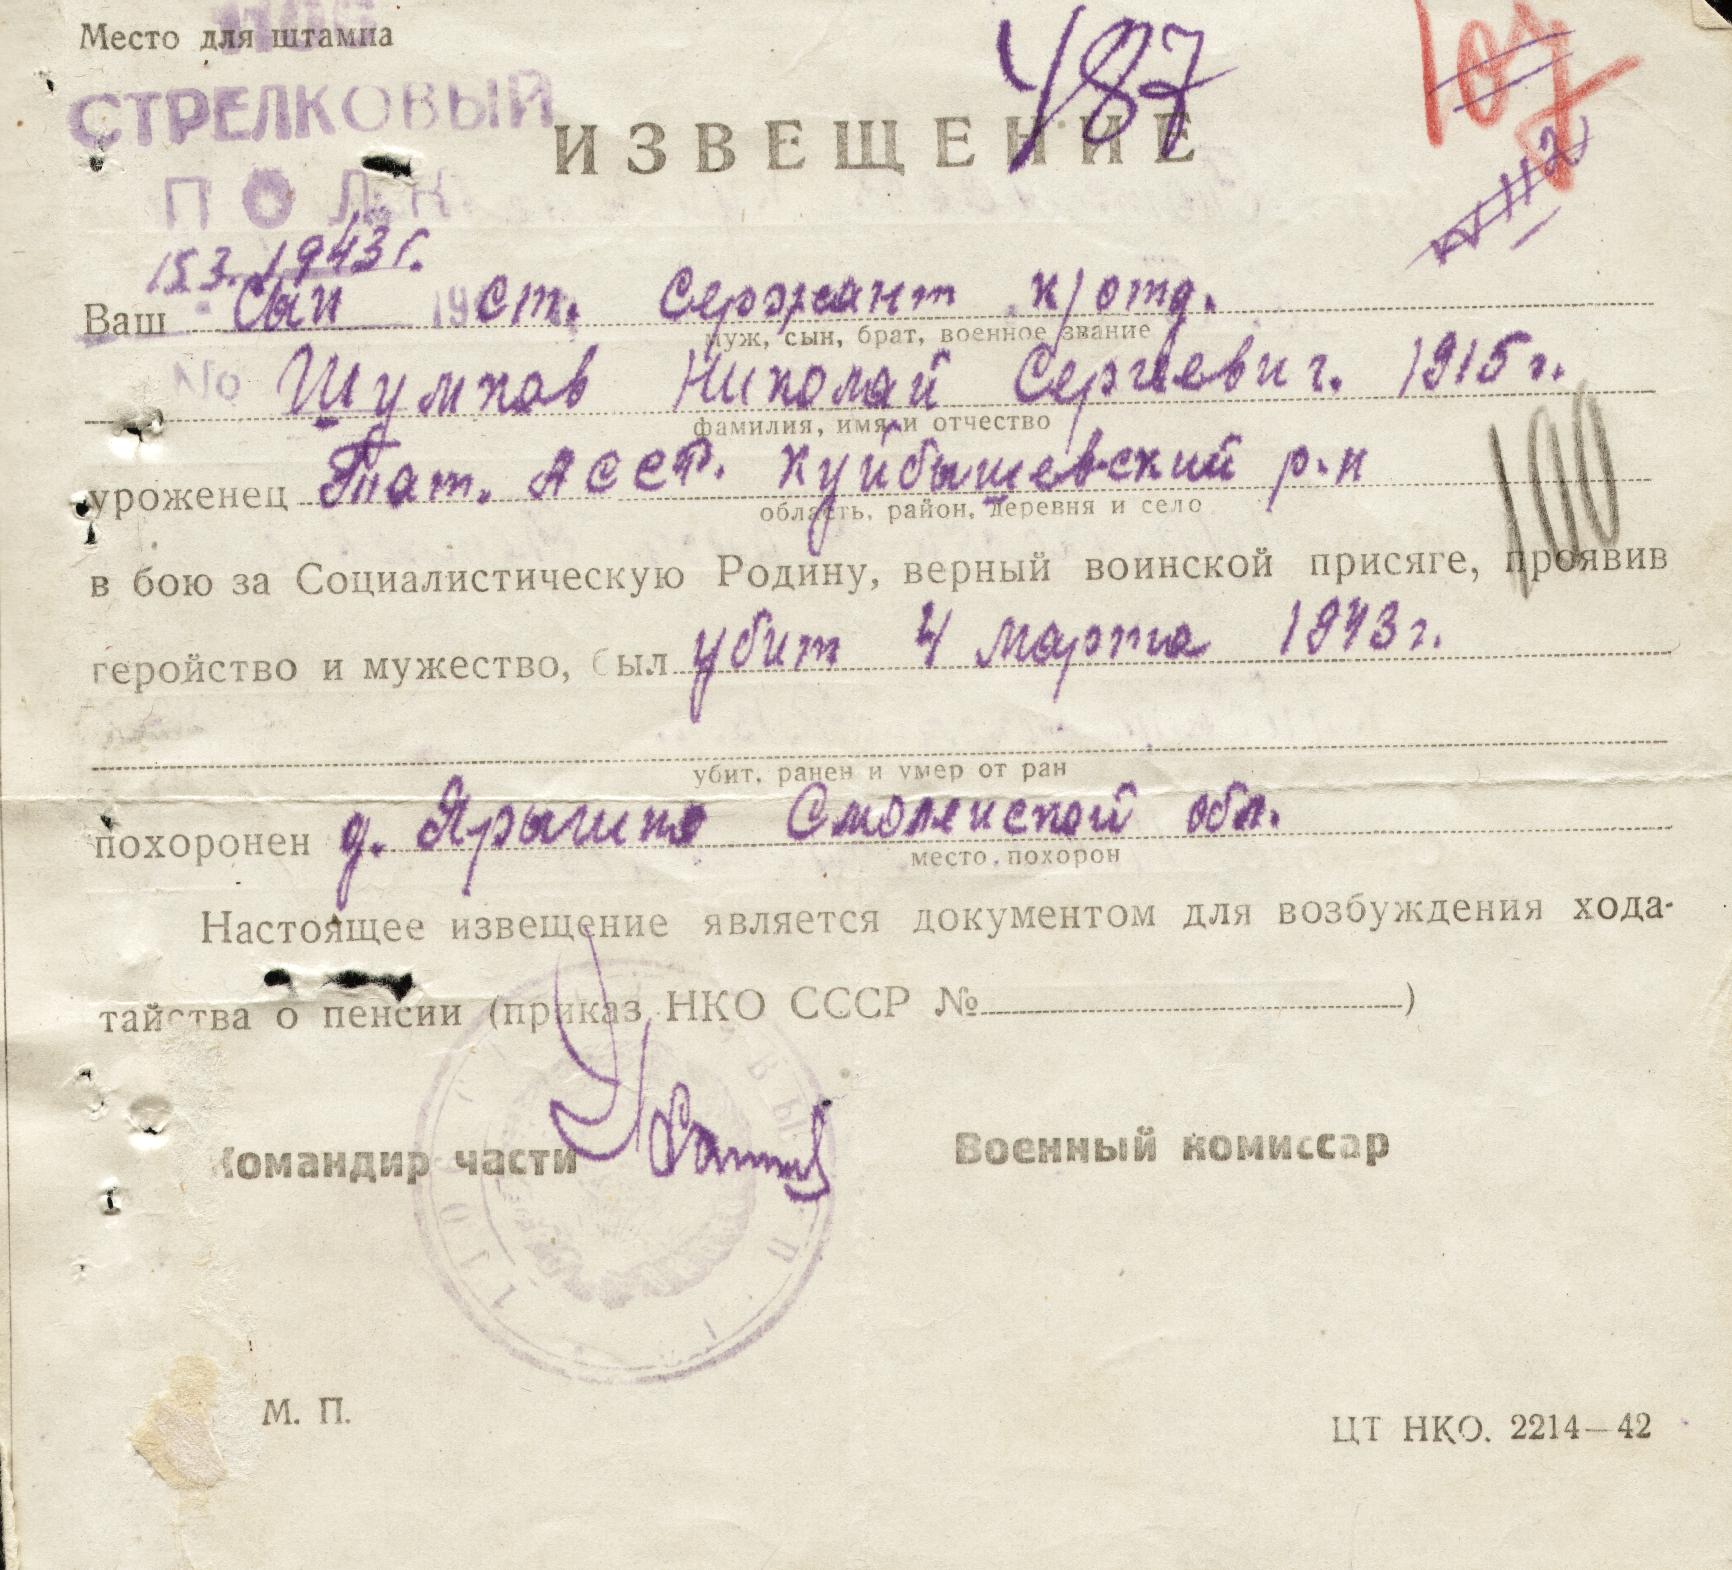 Место для штампа
СТРЕЛКОВЫЙ
ПОЛК
487
107
112
ИЗВЕЩЕНИЕ
15.3. 1943 г.
Ваш Сын ст. Сержант к/отд.
муж, сын, брат, военное звание
№ Шумков Николай Сергеевич. 1915 г.
фамилия, имя и отчество
уроженец Тат. АССР. Куйбышевский р-н
область, район, деревня и село
100
в бою за Социалистическую Родину, верный воинской присяге, проявив
геройство и мужество, был убит 4 марта 1943 г.
убит, ранен и умер от ран
похоронен д. Ярышко Смоленской обл.
место похорон
Настоящее извещение является документом для возбуждения хода-
тайства о пенсии (приказ НКО СССР № )
Командир части
Военный комиссар
М. П.
ЦТ НКО. 2214—42